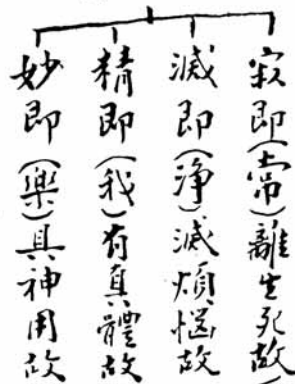 寂即(常)離生死故
滅即(淨)滅煩惱故
精即(我)有真體故
妙即(樂)具神用故